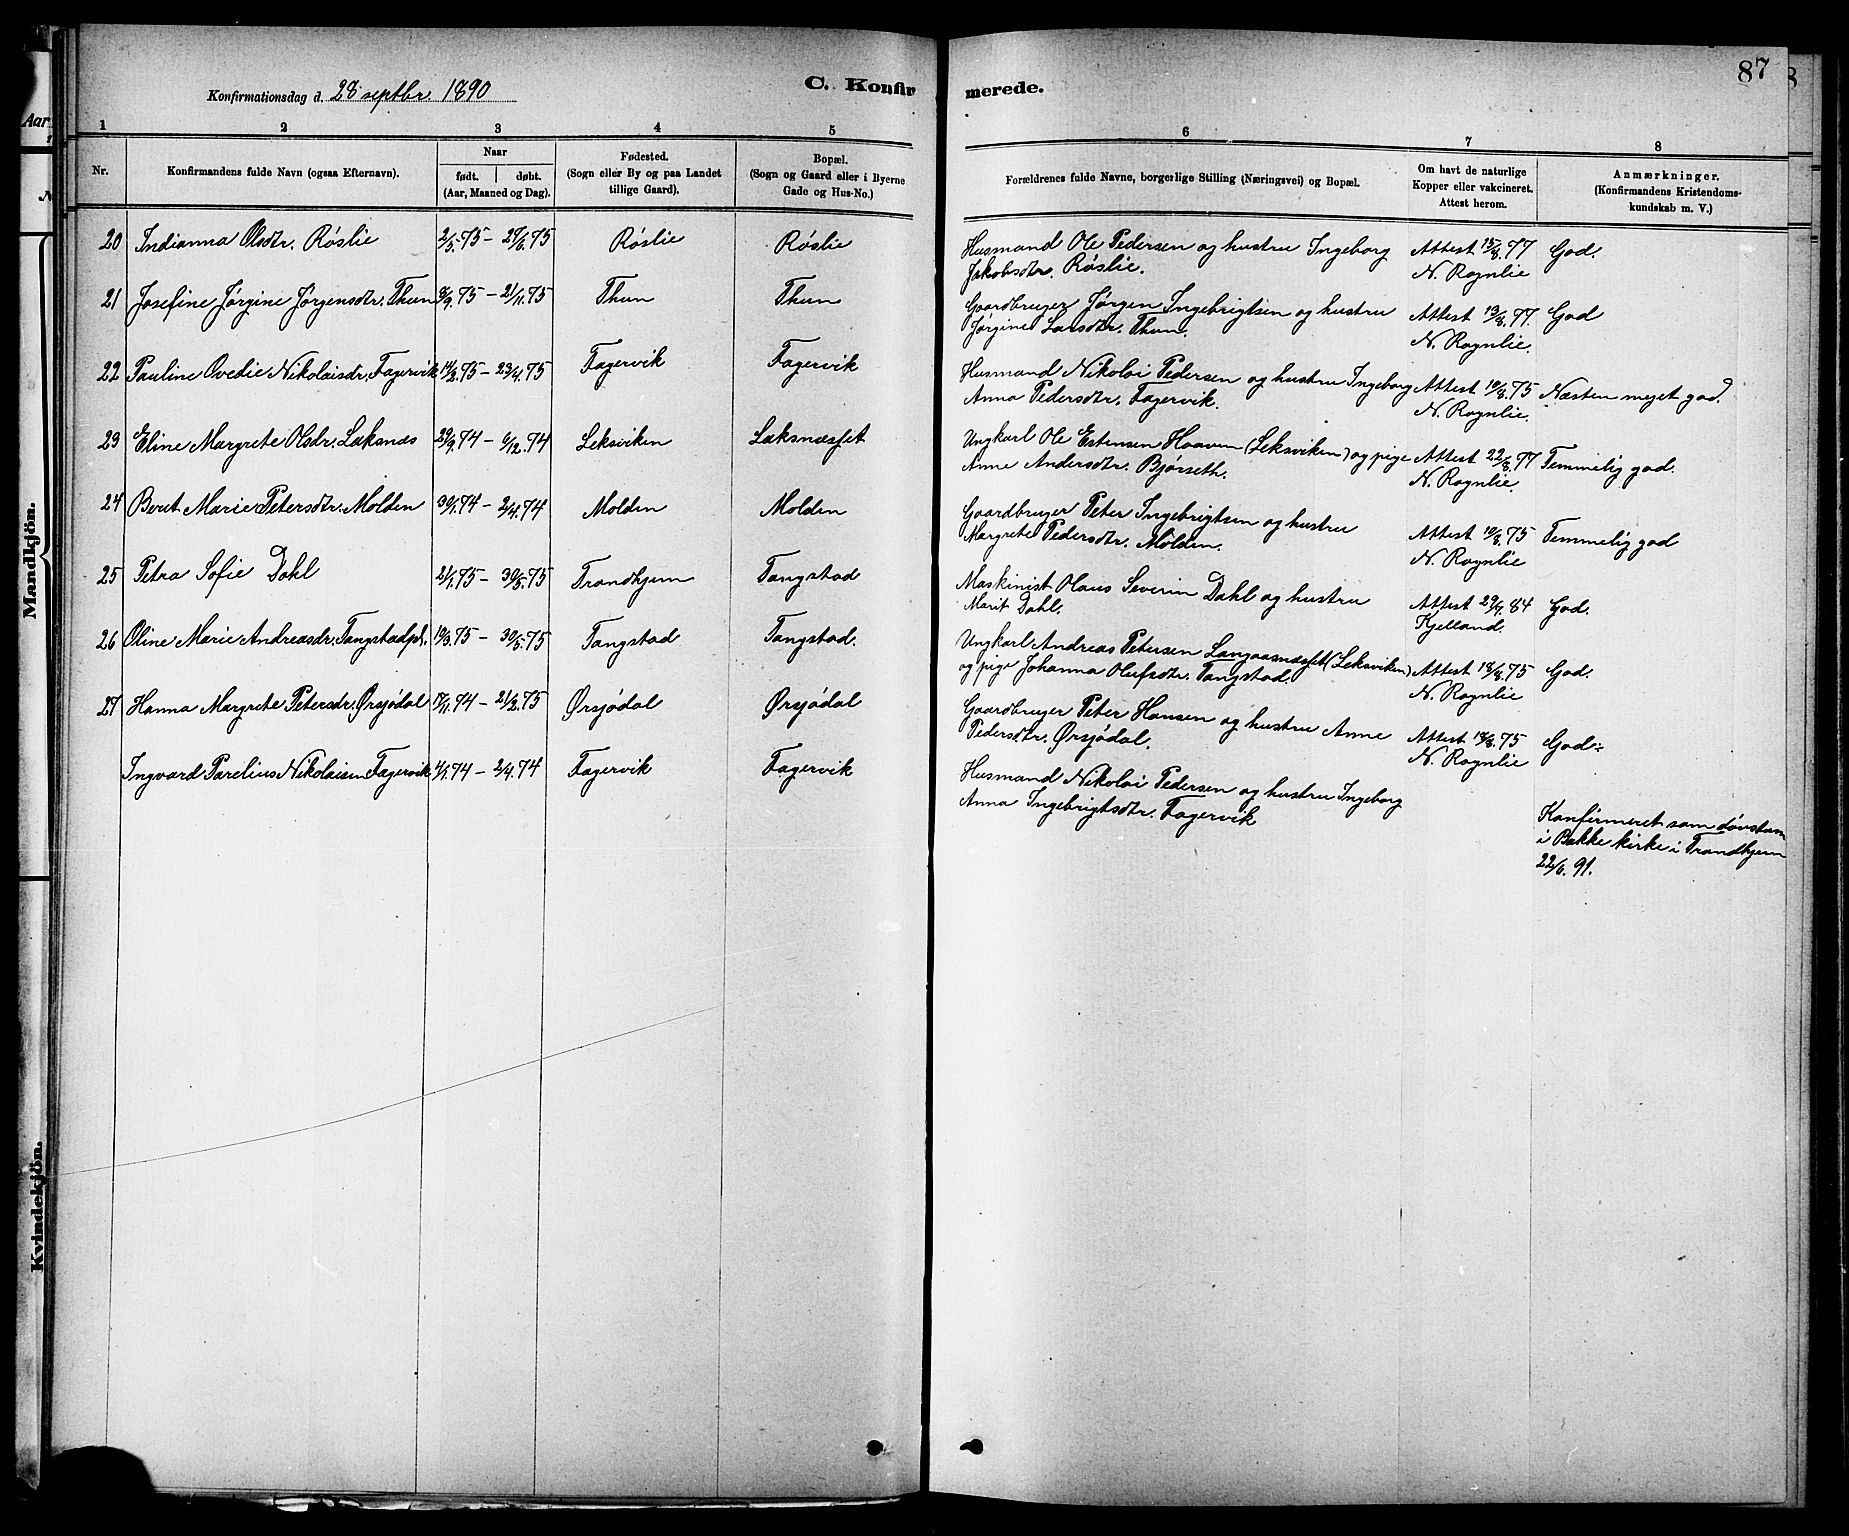 87
Konfirmationsdag d. 28 septbr. 1890
C. Konfirmerede.
1 2 3 4 5 6 7 8
Nr.
Konfirmandens fulde Navn (ogsaa Efternavn).
Naar
født. døbt.
(Aar, Maaned og Dag).
Fødested.
(Sogn eller By og paa Landet
tillige Gaard).
Bopæl.
(Sogn og Gaard eller i Byerne
Gade og Hus-No.)
Forældrenes fulde Navne, borgerlige Stilling (Næringsvei) og Bopæl.
Om havt de naturlige
Kopper eller vakcineret.
Attest herom.
Anmærkninger.
(Konfirmandens Kristendoms-
kundskab m. V.)
20 Indianna Olsdtr. Röslie 2/5.75 – 27/6.75 Röslie Röslie
Husmand Ole Pedersen og hustru Ingeborg
Jakobsdtr. Röslie.
Attest 15/8.77
N. Rognlie
God.
21 Josefine Jørgine Jørgensdtr. Thun 8/9.75 – 21/11.75 Thun Thun
Gaardbruger Jørgen Ingebrigtsen og hustru
Jørgine Larsdtr. Thun.
Attest 13/8.77.
N. Rognlie.
God
22 Pauline Ovedie Nikolaisdr. Fagervik 14/2.75 – 23/4.75 Fagervik Fagervik
Husmand Nikolai Pedersen og hustru Ingeborg
Anna Pedersdtr. Fagervik.
Attest 10/8.75
N. Rognlie.
Næsten meget god.
23 Eline Margrete Olsdr. Laksnæs 29/9.74 – 6/12.74 Leksviken Laksnæsfet
Ungkarl Ole Estensen Haaven (Leksviken) og pige
Anne Andersdtr. Bjørseth.
Attest 22/8.77
N. Rognlie.
Temmelig god.
24 Berit Marie Petersdtr. Molden 30/1.74 – 2/4.74 Molden Molden
Gaardbruger Peter Ingebrigtsen og hustru
Margrete Pedersdtr. Molden.
Attest 10/8.75
N. Rognlie
Temmelig god
25 Petra Sofie Dahl 2/1.75 – 30/5.75 Trondhjem Tangstad
Maskinist Olaus Severin Dahl og hustru
Marit Dahl.
Attest 29/7.84
Kjelland.
God.
26 Oline Marie Andreasdr. Tangstadpl. 19/3.75 – 30/5.75 Tangstad Tangstad.
Ungkarl Andreas Petersen Langaasnæsfet (Leksviken)
og pige Johanna Olufsdtr. Tangstad.
Attest 18/8.75
N. Rognlie
God.
27 Hanna Margrete Petersdr. Ørsjödal 17/11.74 – 21/2.75 Ørsjödal Ørsjödal
Gaardbruger Peter Hansen og hustru Anne
Pedersdtr. Ørsjödal.
Attest 18/8.75
N. Rognlie
God
Ingvard Parelius Nikolaisen Fagervik 4/1.74 – 2/4.74 Fagervik Fagervik
Husmand Nikolai Pedersen og hustru Ingeborg
Anna Ingebrigtsdtr. Fagervik
Konfirmeret som døvstum
i Bakke kirke i Trondhjem
22/6.91.
Aar
Mandkjön.
Kvindekjön.